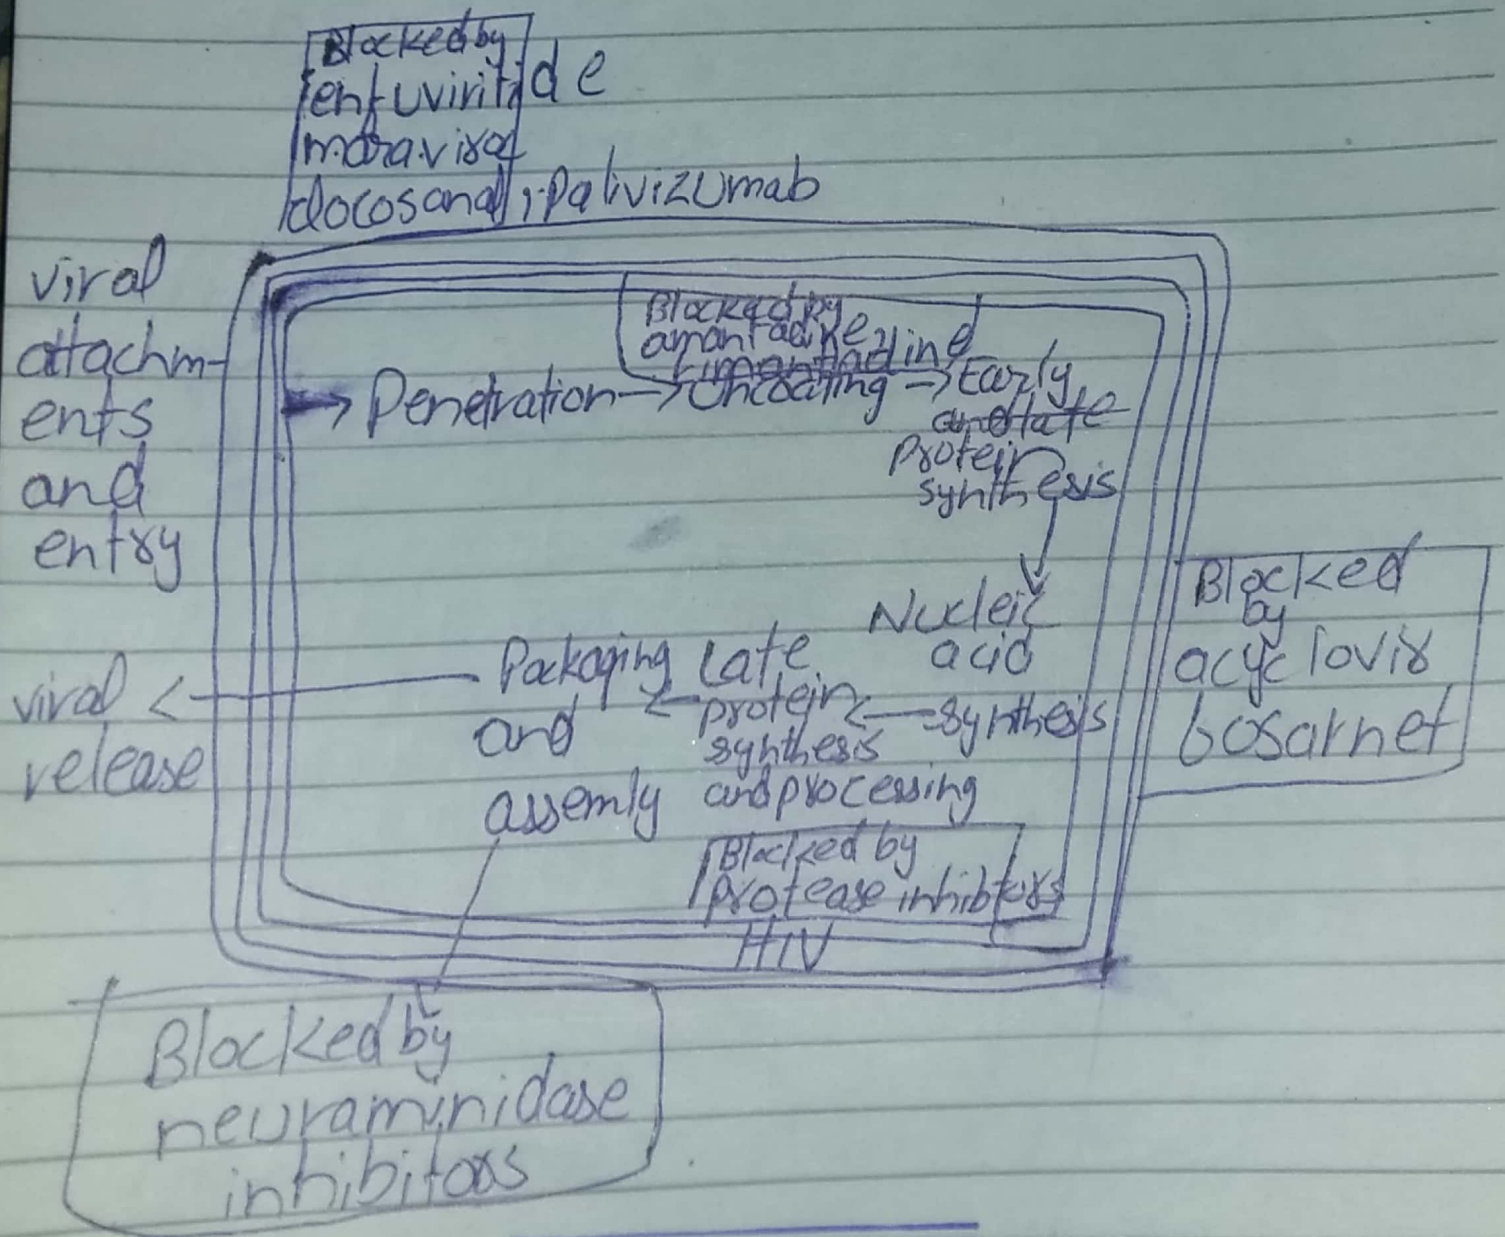 Blocked by
enfuviritide
maraviroc
docosanol, palivizumab
viral
attachm-
ents
and
entry
Blocked by
amantadine,
rimantadine
Penetration → Uncoating → Early
and late
Protein
synthesis
Nucleic
acid
synthesis
Blocked
by
acyclovir
bosarnet
Late
protein
synthesis
and processing
Blocked by
protease inhibitors
HIV
Packaging
and
assemly
viral
release
Blocked by
neuraminidase
inhibitors